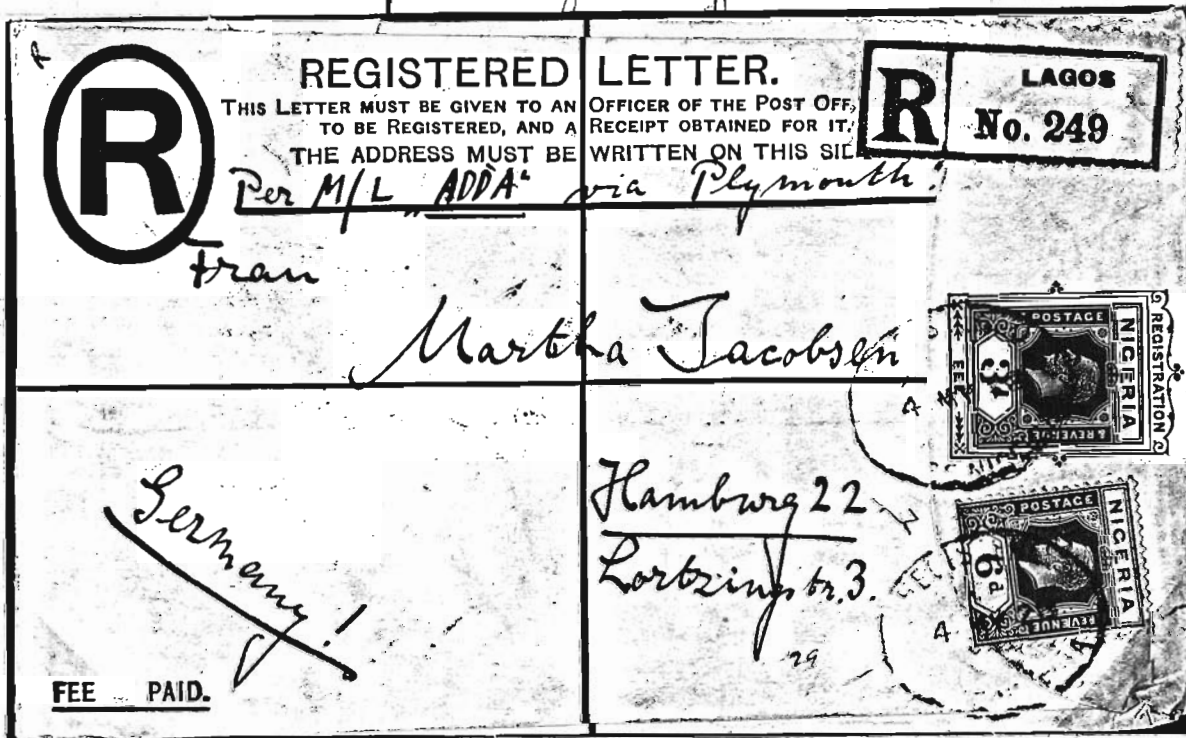 R
REGISTERED LETTER.
THIS LETTER MUST BE GIVEN TO AN OFFICER OF THE POST OFF
TO BE REGISTERED, AND A RECEIPT OBTAINED FOR IT.
THE ADDRESS MUST BE WRITTEN ON THIS SIDE
R LAGOS
No. 249
Per M/L "ADDA" via Plymouth.
Frau
Martha Jacobsen
Hamburg 22
Lortzingstr. 3.
Germany!
29
FEE PAID.
REGISTRATION
FEE
NIGERIA
POSTAGE
& REVENUE
3d
NIGERIA
POSTAGE
REVENUE
6d